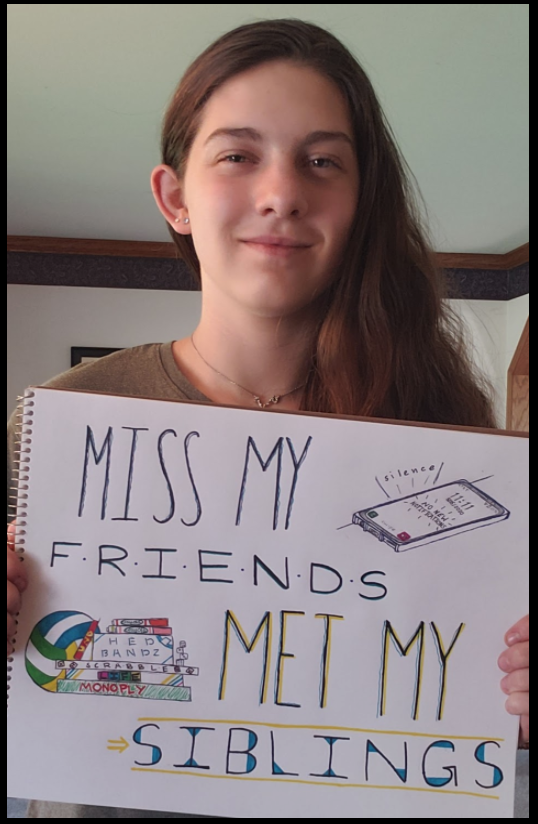 MISS MY
silence
11:11
NO NEW
NOTIFICATIONS
F·R·I·E·N·D·S
UNO
HED
BANDZ
SCRABBLE
LIFE
MONOPLY
MET MY
⇒SIBLINGS